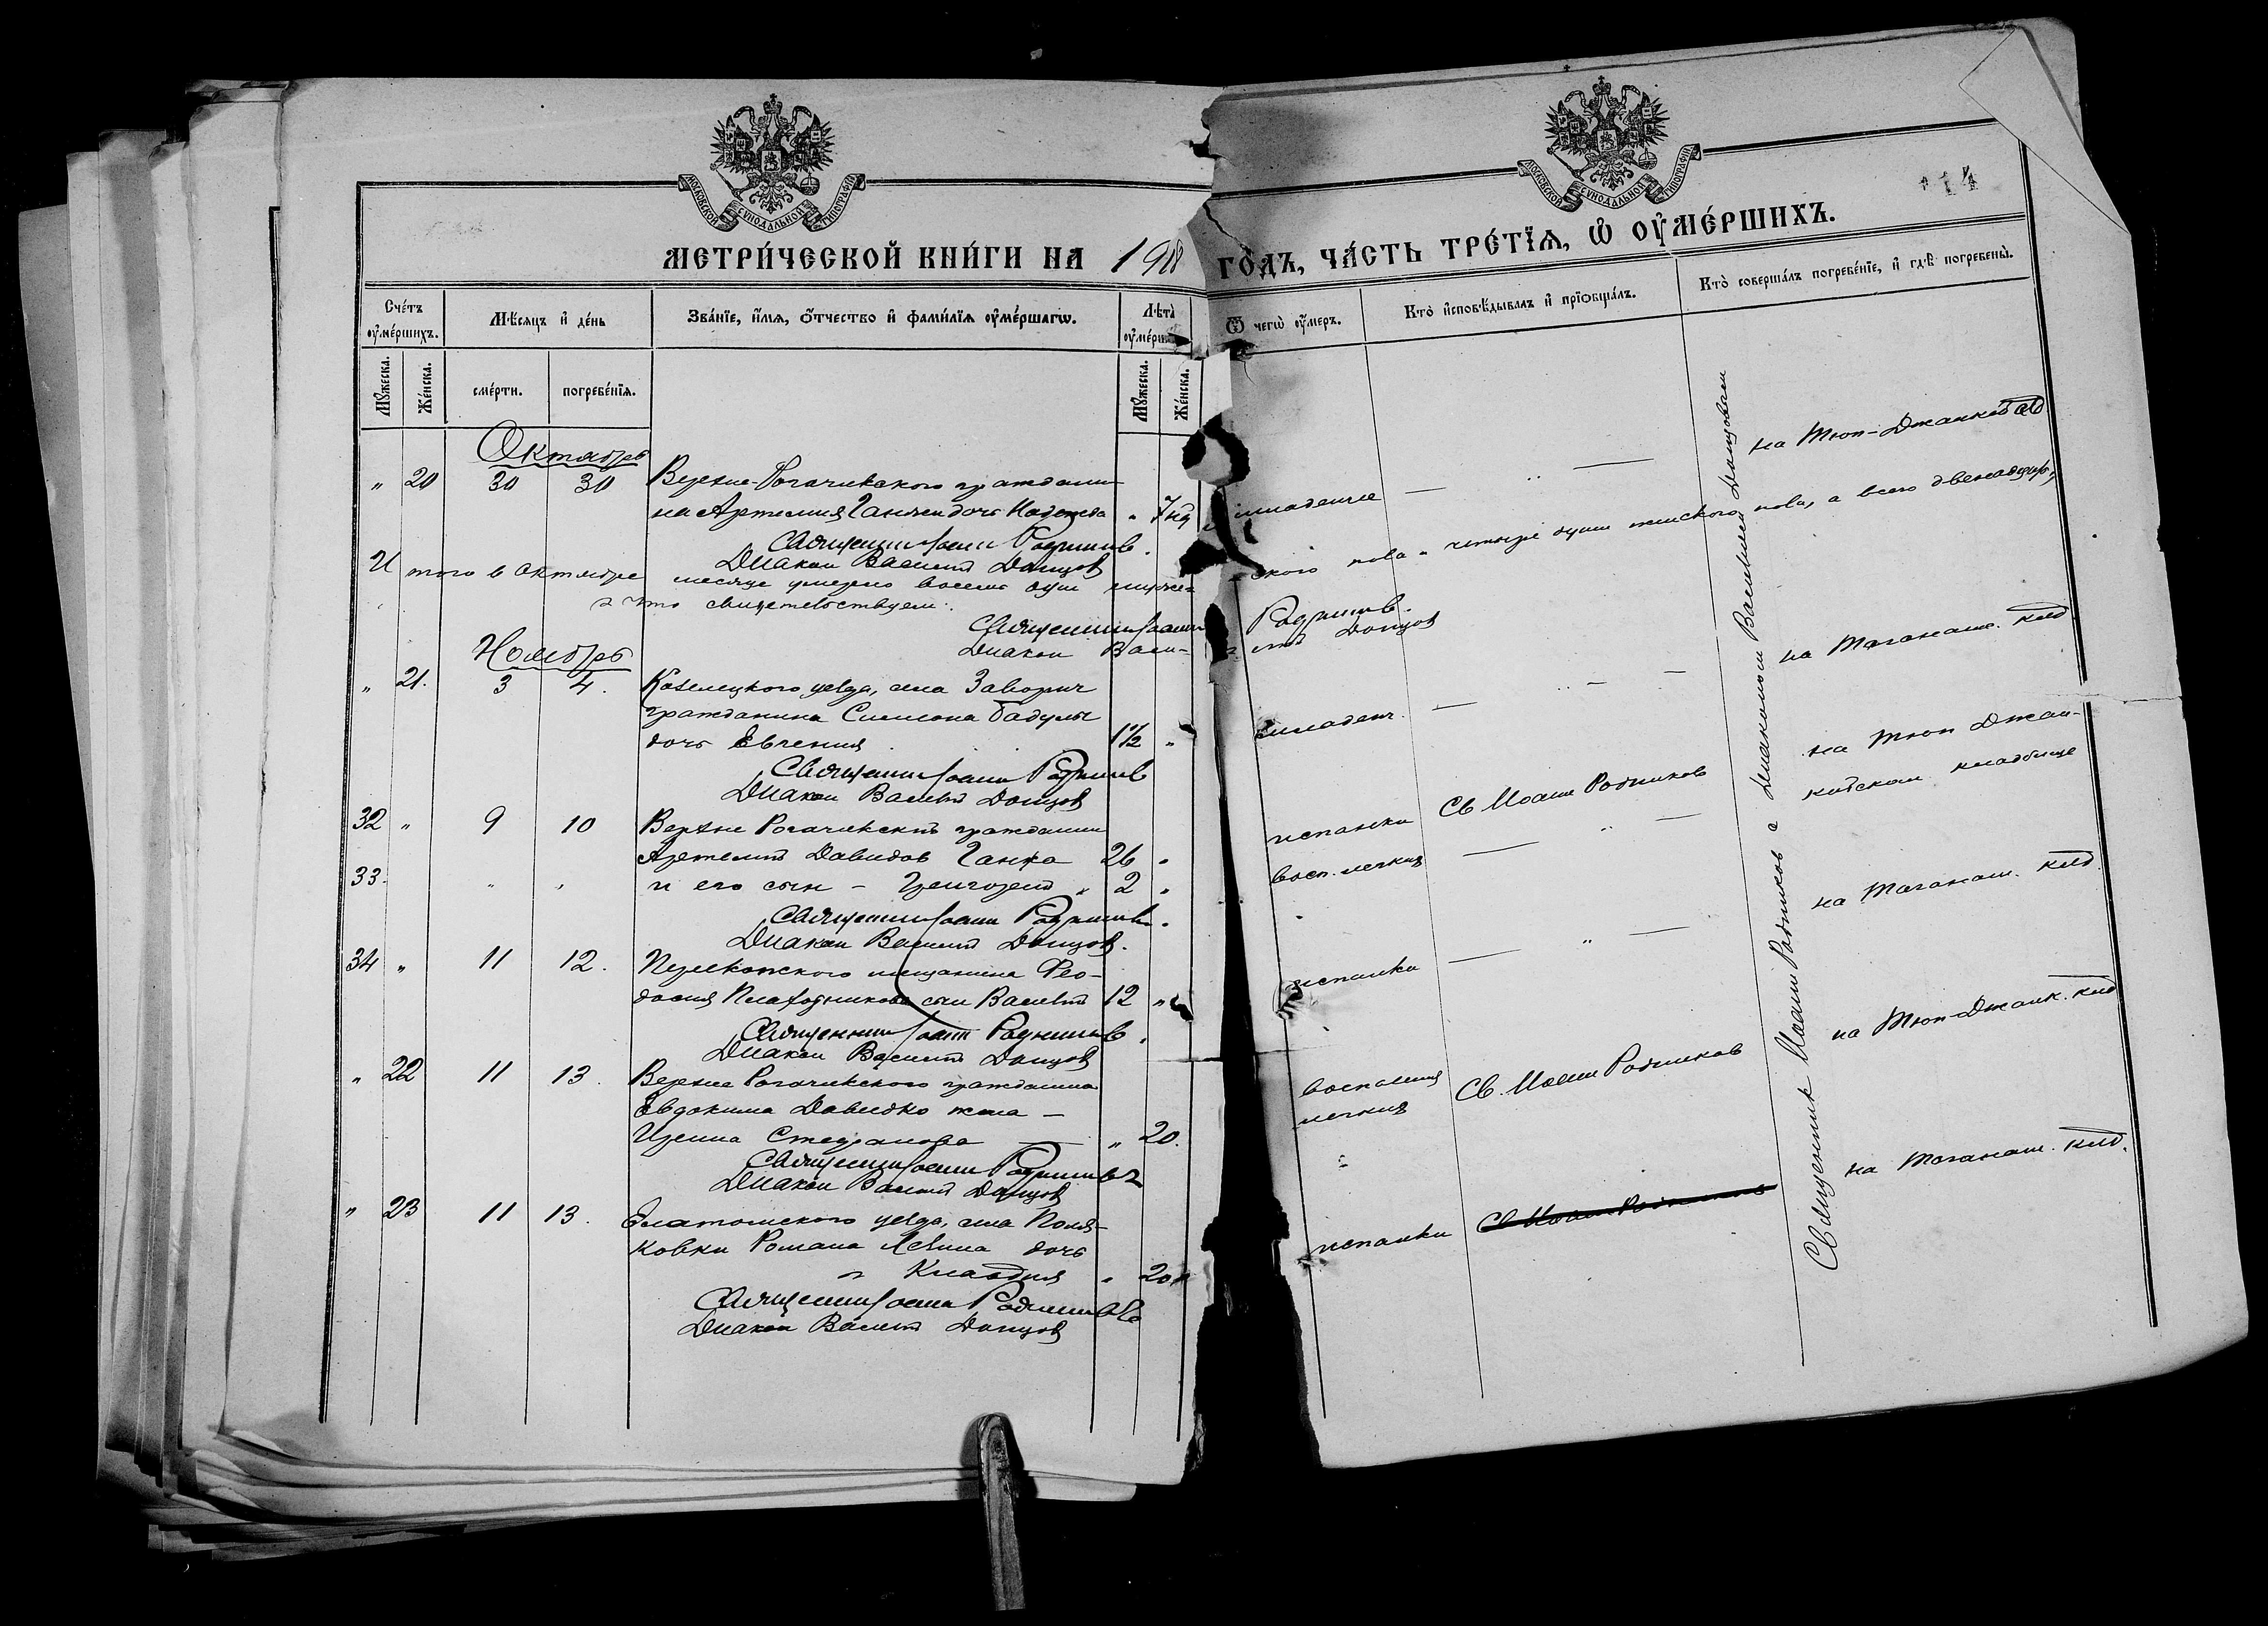 МОСКОВСКОЙ СѴНОДАЛЬНОЙ ТИПОГРАФІИ
МОСКОВСКОЙ СѴНОДАЛЬНОЙ ТИПОГРАФІИ
114
МЕТРИ́ЧЕСКОЙ КНИ́ГИ НА 1918 ГО́ДЪ, ЧА́СТЬ ТРЕ́ТЇѦ, Ѡ҆ ОУ҆МЕ́РШИХЪ.
Сче́тъ оу҆ме́ршихъ.
Мѣ́сяцъ и҆ де́нь
Зва́нїе, и҆́мѧ, ѻ҆́тчество и҆ фами́лїѧ оу҆ме́ршагѡ.
Лѣ́та̀ оу҆ме́рш
Ѿ чегѡ̀ оу҆́меръ.
Кто̀ и҆сповѣ́дывалъ и҆ прїѻбща́лъ.
Кто̀ соверша́лъ погребе́нїе, и҆ гдѣ̀ погребены̀.
Мꙋ́жеска.
Же́нска.
сме́рти.
погребе́нїѧ.
Мꙋ́жеска.
Же́нска.
Октябрь
" 20 30 30 Верхне-Рогачикского граждани-
на Артемия Ганжи дочь Надежда " 7 нд младенче — " — на Тюп-Джанкой кld
Священник Иоанн Родников.
Диакон Василий Донцов
Итого в октябре месяце умерло восемь душ мужеского пола и четыре души женского пола, а всего двенадцать,
в чем свидетельствуем:
Священник Иоанн Родников.
Диакон Василий Донцов
Ноябрь
" 21. 3 4. Козелецкого уезда, села Заворич
гражданина Симеона Бадулы
дочь Евгения 1½ " младенч. — " — — на Таганаш. клд.
Священник Иоанн Родников
Диакон Василий Донцов
32 " 9 10 Верхне Рогачикский гражданин
Артемий Давидов Ганжа 26 " испанки Св Иоанн Родников на Тюп Джан-
койском кладбище
33. " " и его сын — Григорий " 2 " восп. легких — " —
Священник Иоанн Родников.
Диакон Василий Донцов.
34 " 11 12. Перекопского мещанина Фео-
досия Плахотникова сын Василий 12 " испанка — " — на Таганаш. клд.
Священник Иоанн Родников.
Диакон Василий Донцов
" 22 11 13. Верхне Рогачикского гражданина
Евдокима Давидко жена —
Ирина Стефанова — " 20. воспаления
легких Св. Иоанн Родников на Тюп-Джанк. клд
Священник Иоанн Родников
Диакон Василий Донцов
" 23 11 13. Елатомского уезда, села Поля-
ковки Романа Левина дочь
Клавдия " 20 испанки на Таганаш. клд.
Священник Иоанн Родников
Диакон Василий Донцов
Священник Иоанн Родников с Диаконом Василием Донцовым